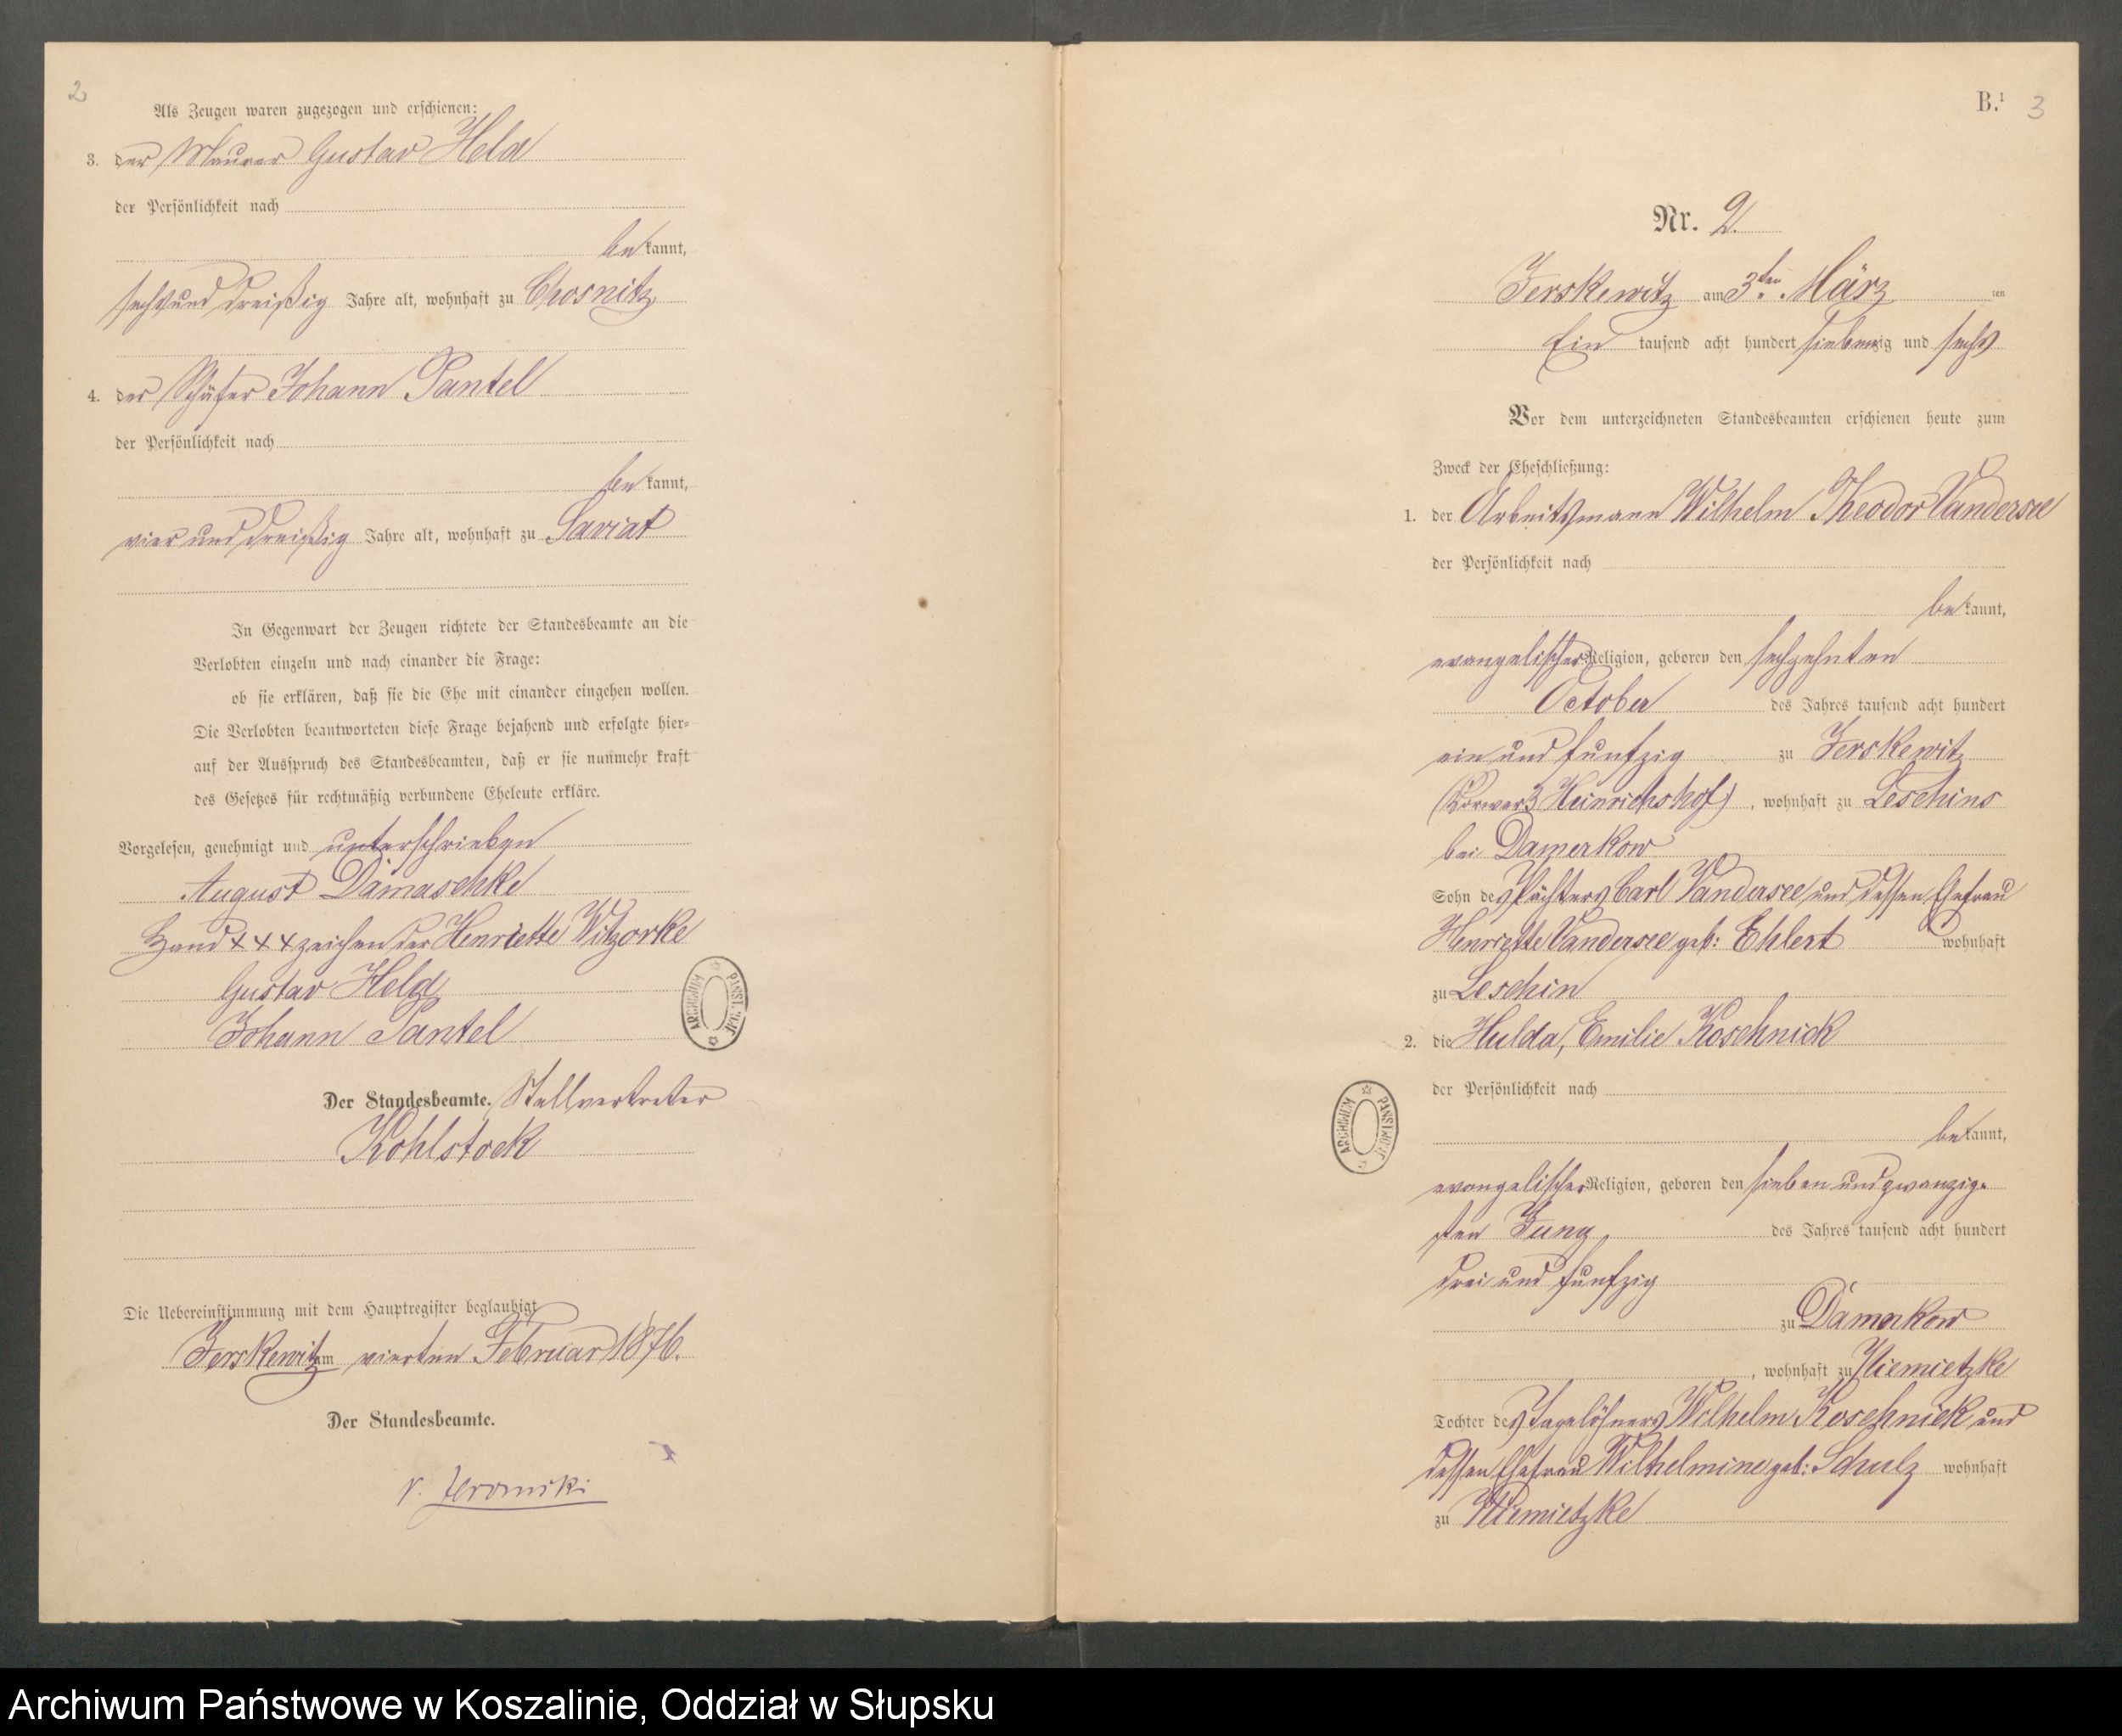 2
Als Zeugen waren zugezogen und erschienen:
3. der Maurer Gustav Held
der Persönlichkeit nach
bekannt,
sechsunddreißig Jahre alt, wohnhaft zu Chosnitz
4. der Schäfer Johann Pantel
der Persönlichkeit nach
bekannt,
vierunddreißig Jahre alt, wohnhaft zu Saviat
In Gegenwart der Zeugen richtete der Standesbeamte an die
Verlobten einzeln und nach einander die Frage:
ob sie erklären, daß sie die Ehe mit einander eingehen wollen.
Die Verlobten beantworteten diese Frage bejahend und erfolgte hier-
auf der Ausspruch des Standesbeamten, daß er sie nunmehr kraft
des Gesetzes für rechtmäßig verbundene Eheleute erkläre.
Vorgelesen, genehmigt und unterschrieben
August Damaschke
Handxxxzeichen der Henriette Witzorke
Gustav Held
Johann Pantel
Der Standesbeamte. Stellvertreter
Kohlstock
Die Uebereinstimmung mit dem Hauptregister beglaubigt
Jerskewitz am vierten Februar 1876.
Der Standesbeamte.
ARCHIWUM PAŃSTWOWE
B.¹ 3
Nr. 2.
Jerskewitz am 3ten März ten
Ein tausend acht hundert siebenzig und sechs
Vor dem unterzeichneten Standesbeamten erschienen heute zum
Zweck der Eheschließung:
1. der Arbeitsmann Wilhelm Theodor Vandersee
der Persönlichkeit nach
bekannt,
evangelischer Religion, geboren den sechzehnten
October des Jahres tausend acht hundert
ein und funfzig zu Jerskewitz
(Vorwerk Heinrichshof), wohnhaft zu Leschins
bei Damerkow
Sohn des Pächters Carl Vandersee und dessen Ehefrau
Henriette Vandersee geb: Ehlert wohnhaft
zu Leschin
2. die Hulda, Emilie Koschnick
der Persönlichkeit nach
bekannt,
evangelischer Religion, geboren den sieben und zwanzig-
sten Juny des Jahres tausend acht hundert
drei und funfzig
zu Damerkow
, wohnhaft zu Niemietzke
Tochter des Tagelöhners Wilhelm Koschnick und
dessen Ehefrau Wilhelmine geb: Schulz wohnhaft
zu Niemietzke
ARCHIWUM PAŃSTWOWE
Archiwum Państwowe w Koszalinie, Oddział w Słupsku